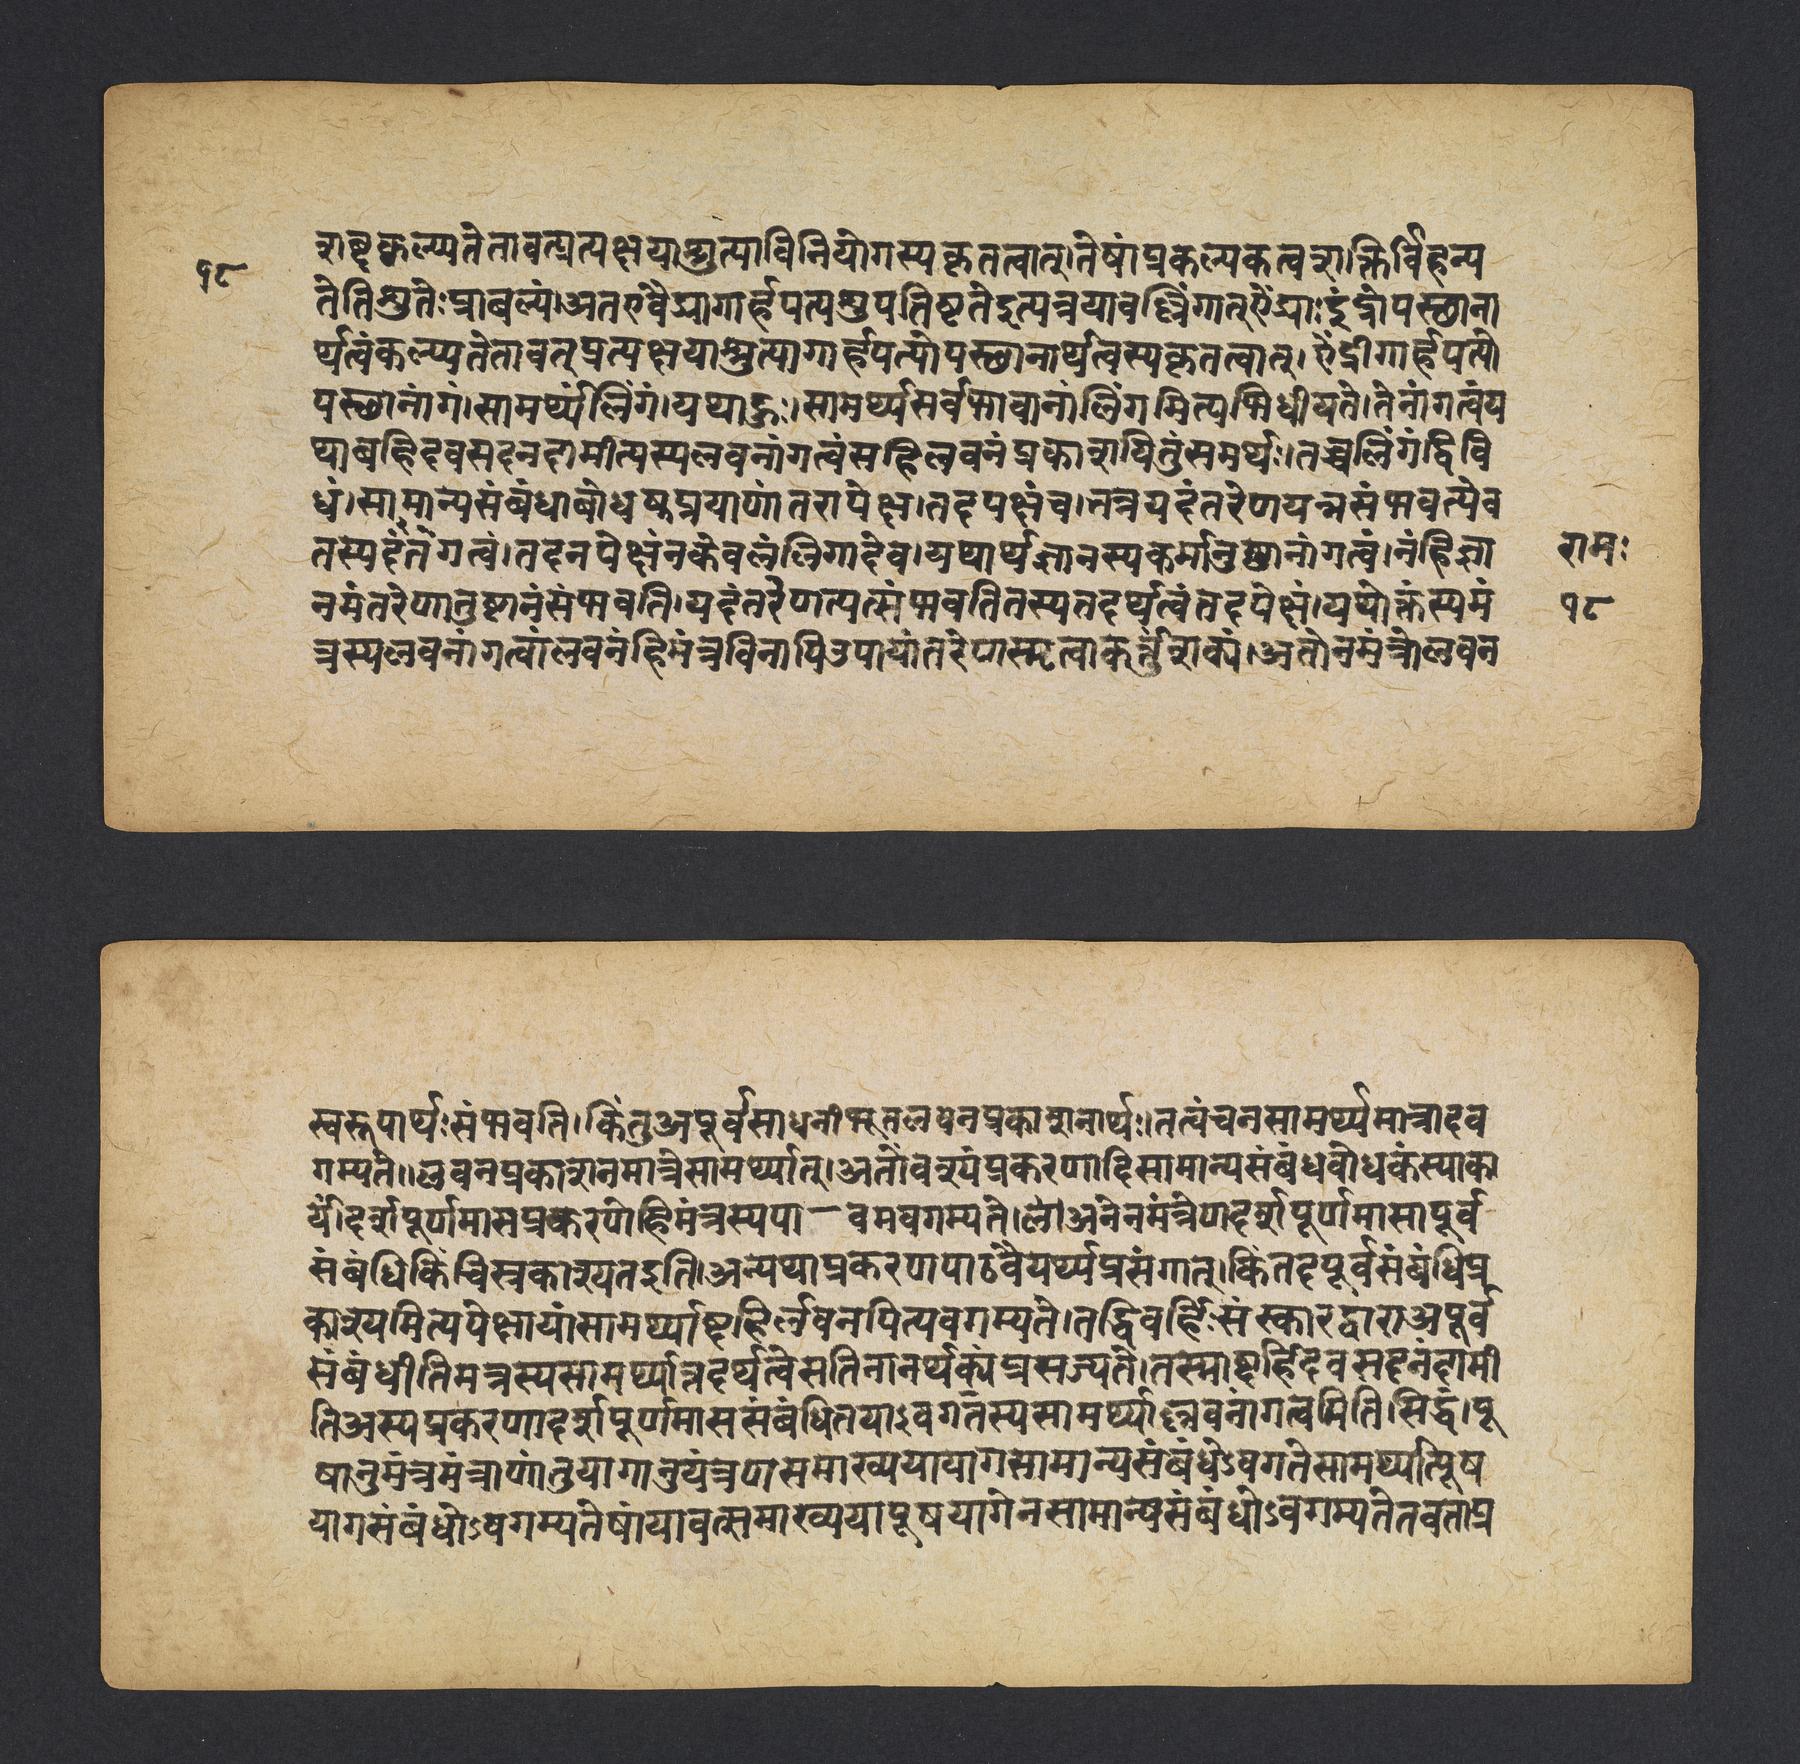 १८
शष्टक्कल्प्यतेतावत्प्रत्यक्षयाश्रुत्याविनियोगस्यकृतत्वात्।तेषांप्रकल्पकत्वशक्तिर्विहन्य
तेतिश्रुतेःप्राबल्यं।अतएवैंद्यागार्हपत्यश्रुपतिष्टतेइत्यत्रयावल्लिंगात्ऐंद्याःइंद्रोपस्छाना
र्थत्वंकल्प्यतेतावत्प्रत्यक्षयाश्रुत्यागार्हपत्योपस्छानार्थत्वस्यकृतत्वात्।ऐंद्रीगार्हपत्यो
पस्छानांगं।सामर्थ्यंलिंगं।यथाहुः।सामर्थ्यसर्वभावानांलिंगमित्यभिधीयते।तेनांगत्वंय
थाबर्हिदेवसदनदामीत्यस्यलवनांगत्वंसहिलवनंप्रकाशयितुंसमर्थः।तच्चलिंगंद्विवि
धं।सामान्यसंबंधाबोधकप्रमाणांतरापेक्ष।तदपेक्षंच।तत्रयदंतरेणयन्नसंभवत्येव
तस्यदंतंगत्वं।तदनपेक्षंनकेवलंलिगादेव।यथार्थज्ञानस्यकर्मानुष्ठानांगत्वं।नंहिज्ञा
राम:
नमंतरेणातुष्टानंसंभवति।यदंतरेणत्यत्संभवतितस्यतदर्थत्वंतदपेक्षं।यथोक्तंस्यमं
१८
त्रस्यलवनांगत्वांलवनंहिमंत्रविनापिउपायांतरेणस्मृत्वाकर्त्तुंशक्यं।अतोनमंत्रोलवन
स्वरूपार्थःसंभवति।किंतुअपूर्वसाधनीभूतलवनप्रकाशनार्थः।तत्वंचनसामर्थ्यमात्रादव
गम्यते॥लवनप्रकाशनमात्रेसामर्थ्यात्।अतोवश्यंप्रकरणादिसामान्यसंबंधबोधकंस्याका
र्यं।दर्शपूर्णमासप्रकरणेहिमंत्रस्यपा–वमवगम्यते।ले।अनेनमंत्रेणदर्शपूर्णमासापूर्व
संबंधिकिंचित्प्रकाश्यतइति।अन्यथाप्रकरणपाठवैयर्थ्यप्रसंगात्।किंतदपूर्वसंबंधिप्र
काश्यमित्यपेक्षायांसामर्थ्याष्टहिर्लवनमित्यवगम्यते।तद्धिवर्हिःसंस्कारद्वाराअपूर्व
संबंधीतिमन्त्रस्यसामर्थ्यात्तदर्थत्वेसतिनानर्थक्यंप्रसज्यते।तस्माद्बर्हिदेवसदनंदामी
तिअस्यप्रकरणादर्शपूर्णमाससंबंधितयाऽवगतस्यसामर्थ्याल्लवनांगत्वमिति।सिद्धं।पू
षानुमंत्रमंत्राणांतुयागानुयंत्रणसमाख्ययायागसामान्यसंबंधेऽवगतेसामर्थ्यात्पूष
यागसंबंधोऽवगम्यतेषांयावत्समाख्ययापूषयागेनसामान्यसंबंधोऽवगम्यतेतवताप्र